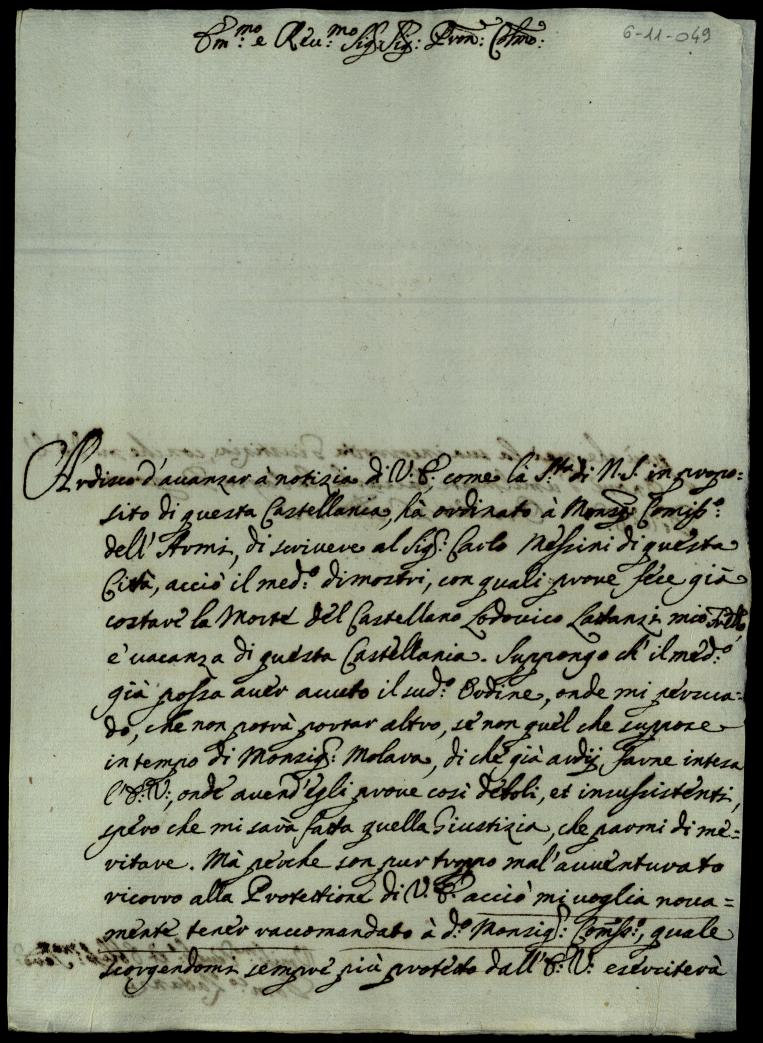 Em.mo e Rev.mo Sig.r Sig.: Pron: Colmo:
6-11-049
Ardisco d'avanzar à notizia di V. E. come la S.tà di N. S. in propo=
sito di questa Castellania, hà ordinato à Monsig.r Comiss.o
dell'Armi, di scrivere al Sig.r Carlo Messini di questa
Città, acciò il med.o dimostri, con quali prove fece già
costare la Morte del Castellano Lodovico Lattanzi mio Frello,
e vacanza di questa Castellania. Suppongo ch'il med.o
già possa aver avuto il sud.o Ordine, onde mi persua=
do, che non potrà portar altro, se non quel che suppose
in tempo di Monsig.r: Molara, di che già ardij, farne intesa
l'E: V:, onde avend'egli prove così deboli, et insussistenti,
spero che mi sarà fatta quella Giustizia, che parmi di me=
ritare. Mà perche son pur troppo mal'avventurato
ricorro alla Protettione di V. E. acciò mi voglia nova=
mente tener raccomandato à d.o Monsig.r: Comss.o, quale
scorgendomi sempre più protetto dall'E: V: eserciterà